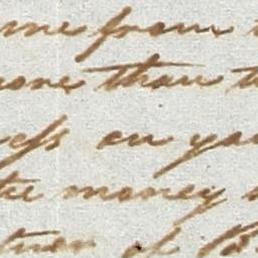 me from
more than
ess on you
the money
of